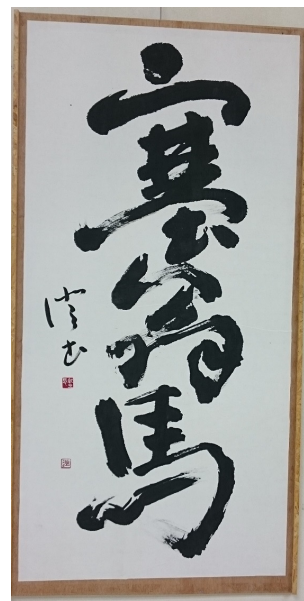 塞翁馬